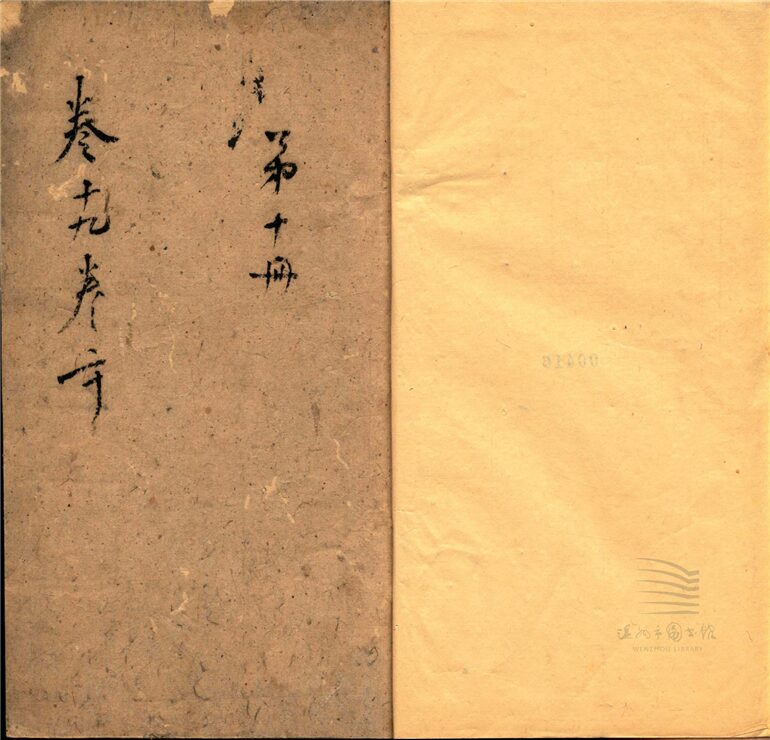 第十冊
卷十九卷二十
00416
温州市图书馆
WENZHOU LIBRARY